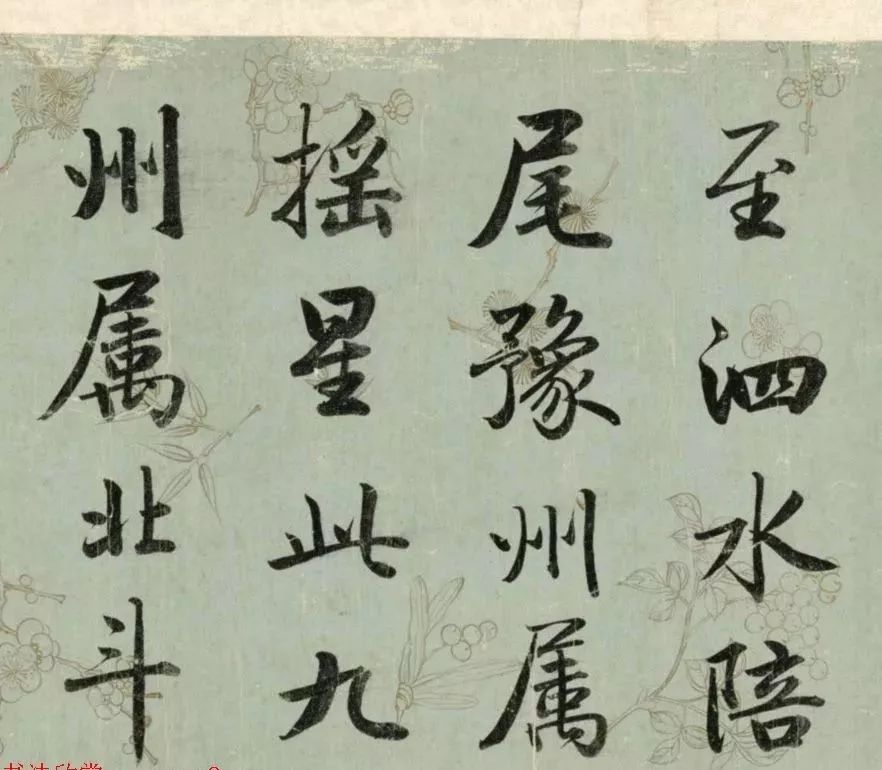 至泗水陪
尾豫州属
摇星此九
州属北斗
书法欣赏